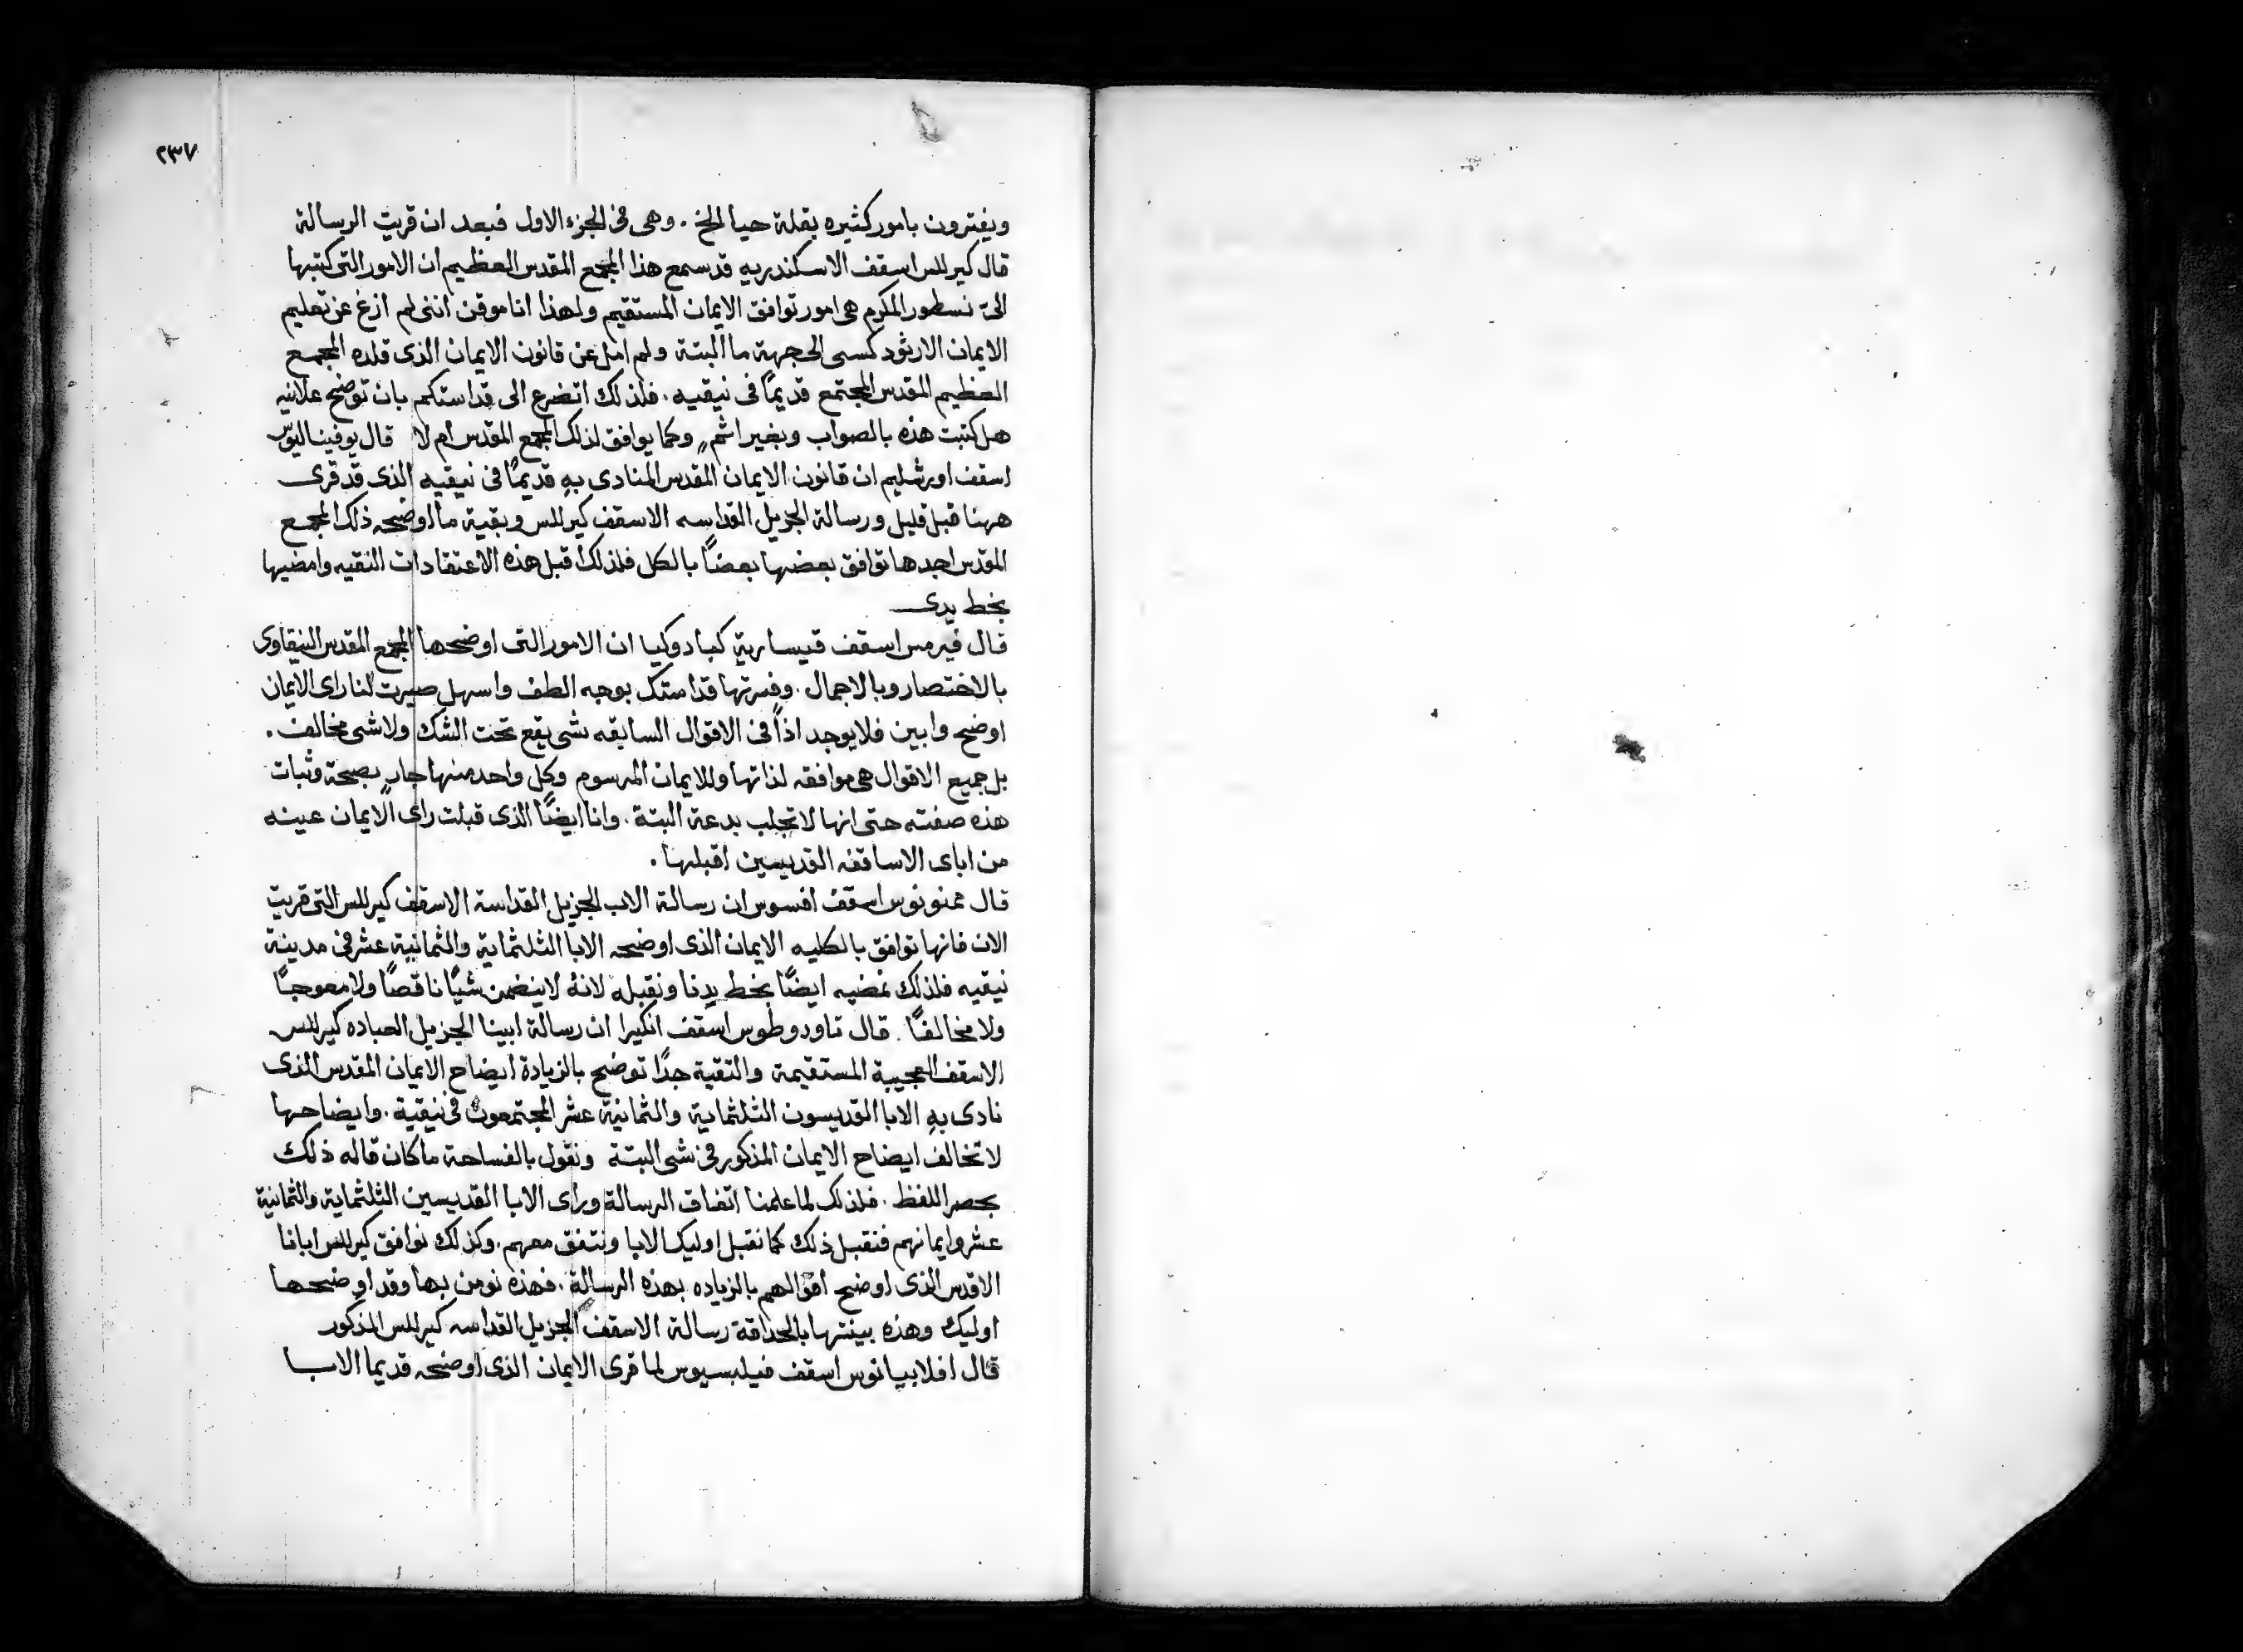 ٢٣٧
ويفترون بامور كثيره بقلة حيا الخ . وهى فى الجزء الاول فبعد ان قريت الرسالة
قال كيرللس اسقف الاسكندريه قد سمع هذا المجمع المقدس العظيم ان الامور التى كتبها
الىّ نسطور المكرم هى امور توافق الايمان المستقيم ولهذا انا موقن اننى لم ازغ عن تعليم
الايمان الارثودكسى الى جهة ما البتة ولم امل عن قانون الايمان الذى قلده المجمع
العظيم المقدس المجتمع قديمًا فى نيقيه . فلذلك اتضرع الى قداستكم بان توضح علانيه
هل كتبت هذه بالصواب وبغير اثمٍ وكما يوافق لذلك المجمع المقدس ام لا قال يوفيناليوس
اسقف اورشليم ان قانون الايمان المقدس المنادى بهِ قديمًا فى نيقيه الذى قد قرى
ههنا قبل قليل ورسالة الجزيل القداسه الاسقف كيرللس وبقية ما اوضحه ذلك المجمع
المقدس اجدها توافق بعضها بعضًا بالكل فلذلك اقبل هذه الاعتقادات النقيه وامضيها
بخط يدى
قال فيرمس اسقف قيسارية كبادوكيا ان الامور التى اوضحها المجمع المقدس النيقاوى
بالاختصار وبالاجمال . وفسرتها قداستك بوجه الطف واسهل صيرت لنا راى الايمان
اوضح وابين فلا يوجد اذاً فى الاقوال السابقه شى يقع تحت الشك ولا شى مخالف .
بل جميع الاقوال هى موافقه لذاتها وللايمان المرسوم وكل واحد منها جارٍ بصحة وثبات
هذه صفته حتى انها لا تجلب بدعة البتة . وانا ايضًا الذى قبلت راى الايمان عينه
من اباى الاساقفه القديسين اقبلها .
قال ممنونوس اسقف افسوس ان رسالة الاب الجزيل القداسة الاسقف كيرللس التى قريت
الان فانها توافق بالكليه الايمان الذى اوضحه الابا الثلثماية والثمانية عشر فى مدينة
نيقيه فلذلك نمضيه ايضًا بخط يدنا ونقبله لانهُ لا يتضمن شيًا ناقصًا ولا معوجًا
ولا مخالفًا . قال تاودوطوس اسقف انكيرا ان رسالة ابينا الجزيل العباده كيرللس
الاسقف العجيبة المستقيمة والتقية جدًا توضح بالزيادة ايضاح الايمان المقدس الذى
نادى بهِ الابا القديسون الثلثماية والثمانية عشر المجتمعون فى نيقية . وايضاحها
لا تخالف ايضاح الايمان المذكور فى شى البتة ونقول بالفساحة ما كان قاله ذلك
بحصر اللفظ . فلذلك لما علمنا اتفاق الرسالة وراى الابا القديسين الثلثماية والثمانية
عشر وايمانهم فنقبل ذلك كما نقبل اوليك الابا ونتفق معهم . وكذلك نوافق كيرللس ابانا
الاقدس الذى اوضح اقوالهم بالزياده بهذه الرسالة . فهذه نومن بها وقد اوضحها
اوليك وهذه بينتها بالحداقة رسالة الاسقف الجزيل القداسه كيرللس المذكور
قال افلابيانوس اسقف فيلبسيوس لما قرى الايمان الذى اوضحه قديما الابا